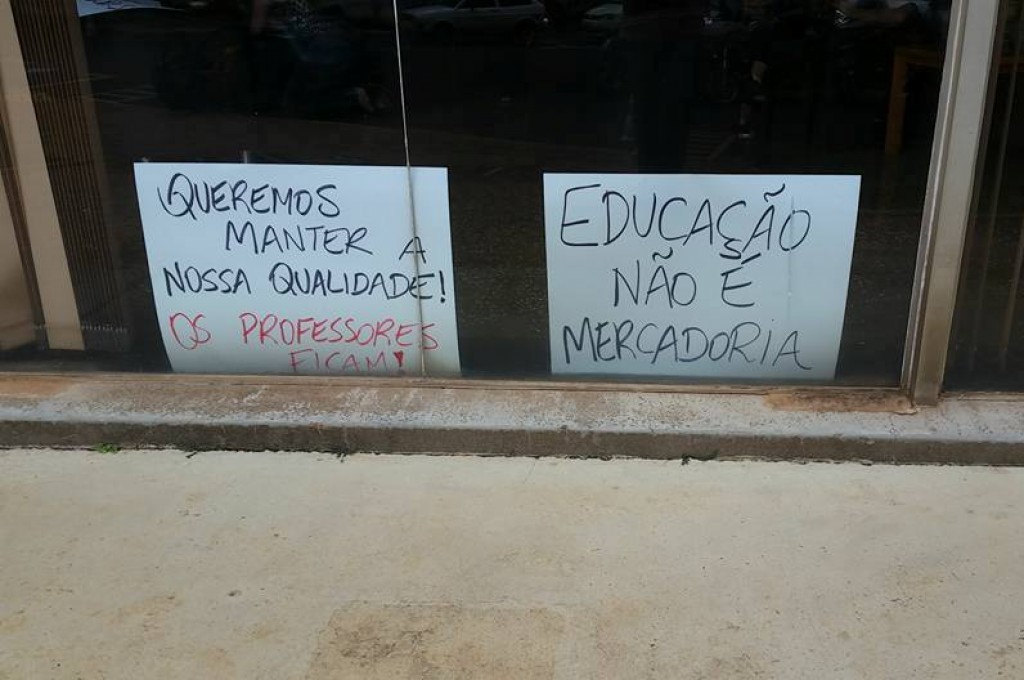 QUEREMOS
MANTER A
NOSSA QUALIDADE!
OS PROFESSORES
FICAM!
EDUCAÇÃO
NÃO É
MERCADORIA